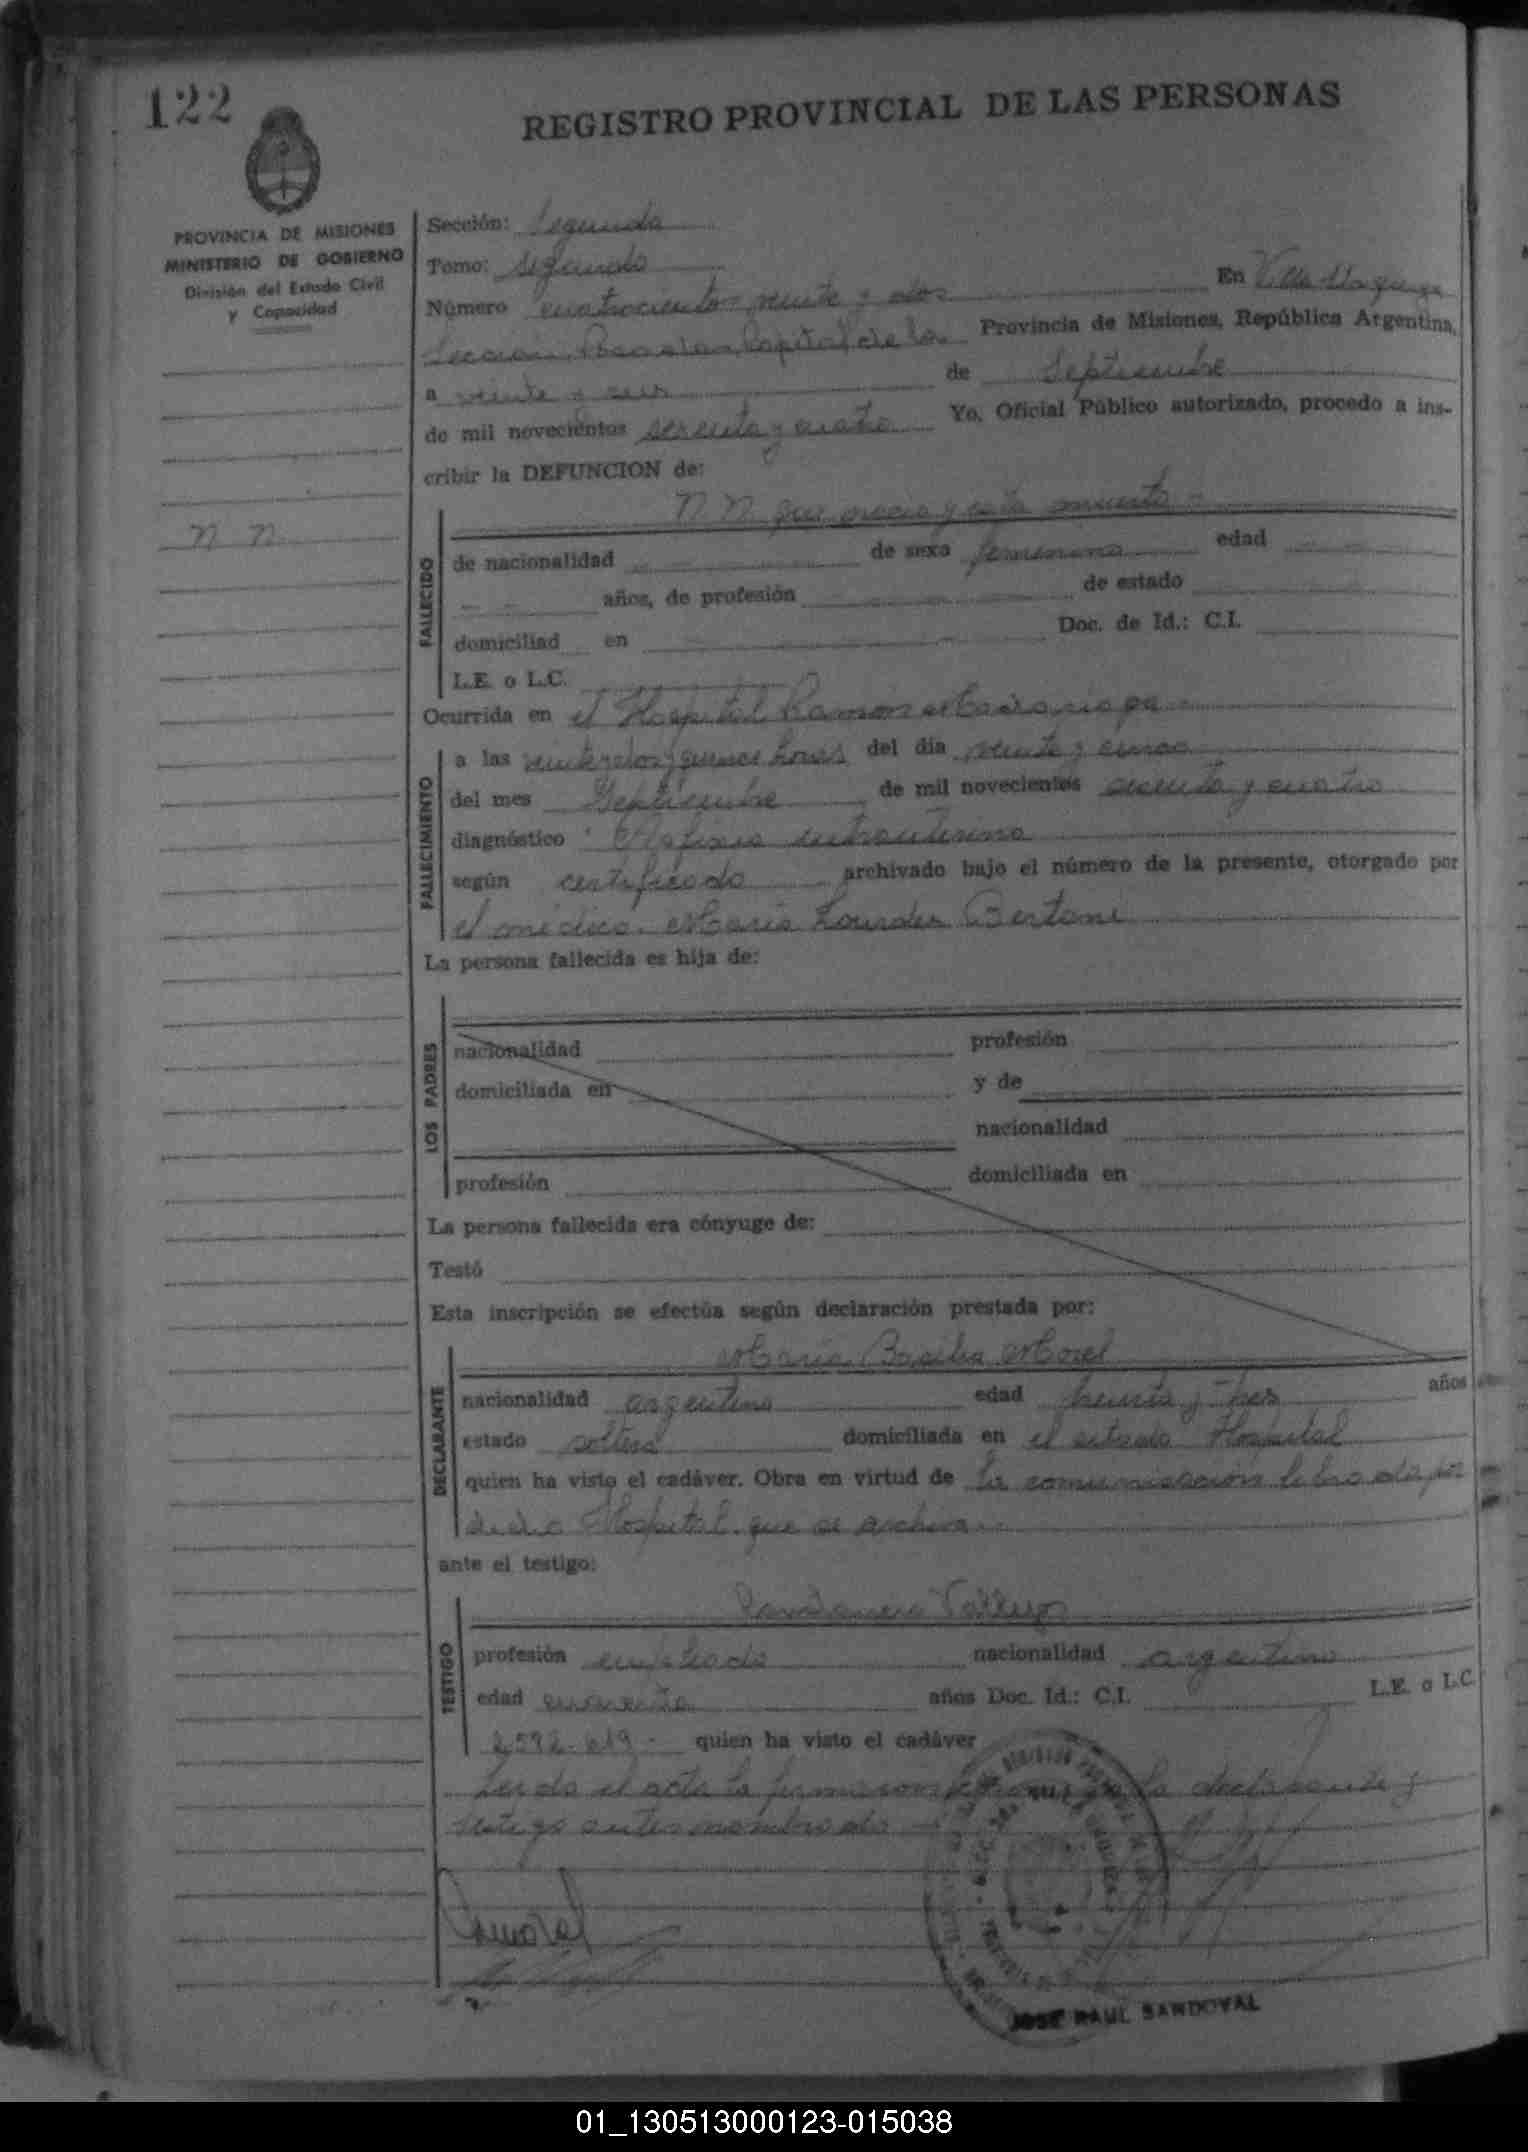 122
REGISTRO PROVINCIAL DE LAS PERSONAS
PROVINCIA DE MISIONES
MINISTERIO DE GOBIERNO
División del Estado Civil
y Capacidad
Sección: Segunda
Tomo: Segundo
Número cuatrocientos veinte y dos En Villa Urquiza
Sección Posadas, Capital de la Provincia de Misiones, República Argentina,
a veinte y seis de Septiembre
de mil novecientos sesenta y cuatro Yo, Oficial Público autorizado, procedo a ins-
cribir la DEFUNCION de:
N N
N N que nació y esta muerta
FALLECIDO
de nacionalidad de sexo femenino edad
años, de profesión de estado
domiciliad en Doc. de Id.: C.I.
L.E. o L.C.
Ocurrida en el Hospital Ramón Madariaga
FALLECIMIENTO
a las veinte y dos y quince horas del día veinte y cinco
del mes Septiembre de mil novecientos sesenta y cuatro
diagnóstico Asfixia intrauterina
según certificado archivado bajo el número de la presente, otorgado por
el médico. María Lourdes Bertoni
La persona fallecida es hija de:
LOS PADRES
nacionalidad profesión
domiciliada en y de
nacionalidad
profesión domiciliada en
La persona fallecida era cónyuge de:
Testó
Esta inscripción se efectúa según declaración prestada por:
María Basilia Morel
DECLARANTE
nacionalidad argentina edad treinta y tres años
estado soltera domiciliada en el citado Hospital
quien ha visto el cadáver. Obra en virtud de la comunicación librada por
dicho Hospital que se archiva
ante el testigo:
Vallejos
TESTIGO
profesión empleado nacionalidad argentino
edad cincuenta años Doc. Id.: C.I. L.E. o L.C.
2592.619 quien ha visto el cadáver
Leida el acta la firma conmigo la declarante y
testigo antes nombrado
JOSE RAUL SANDOVAL
01_130513000123-015038